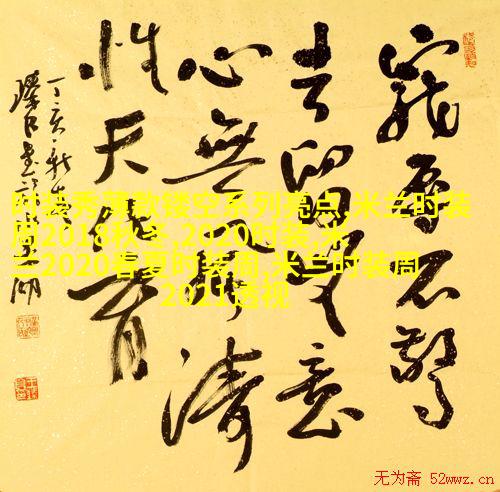 寵辱不驚
去留無意
心無濤
性天育
丁亥
时装秀薄款镂空系列亮点,米兰时装
周2018秋冬,2020时装,米
兰2020春夏时装周,米兰时装周
2021透视
无为斋 52wwz.cn